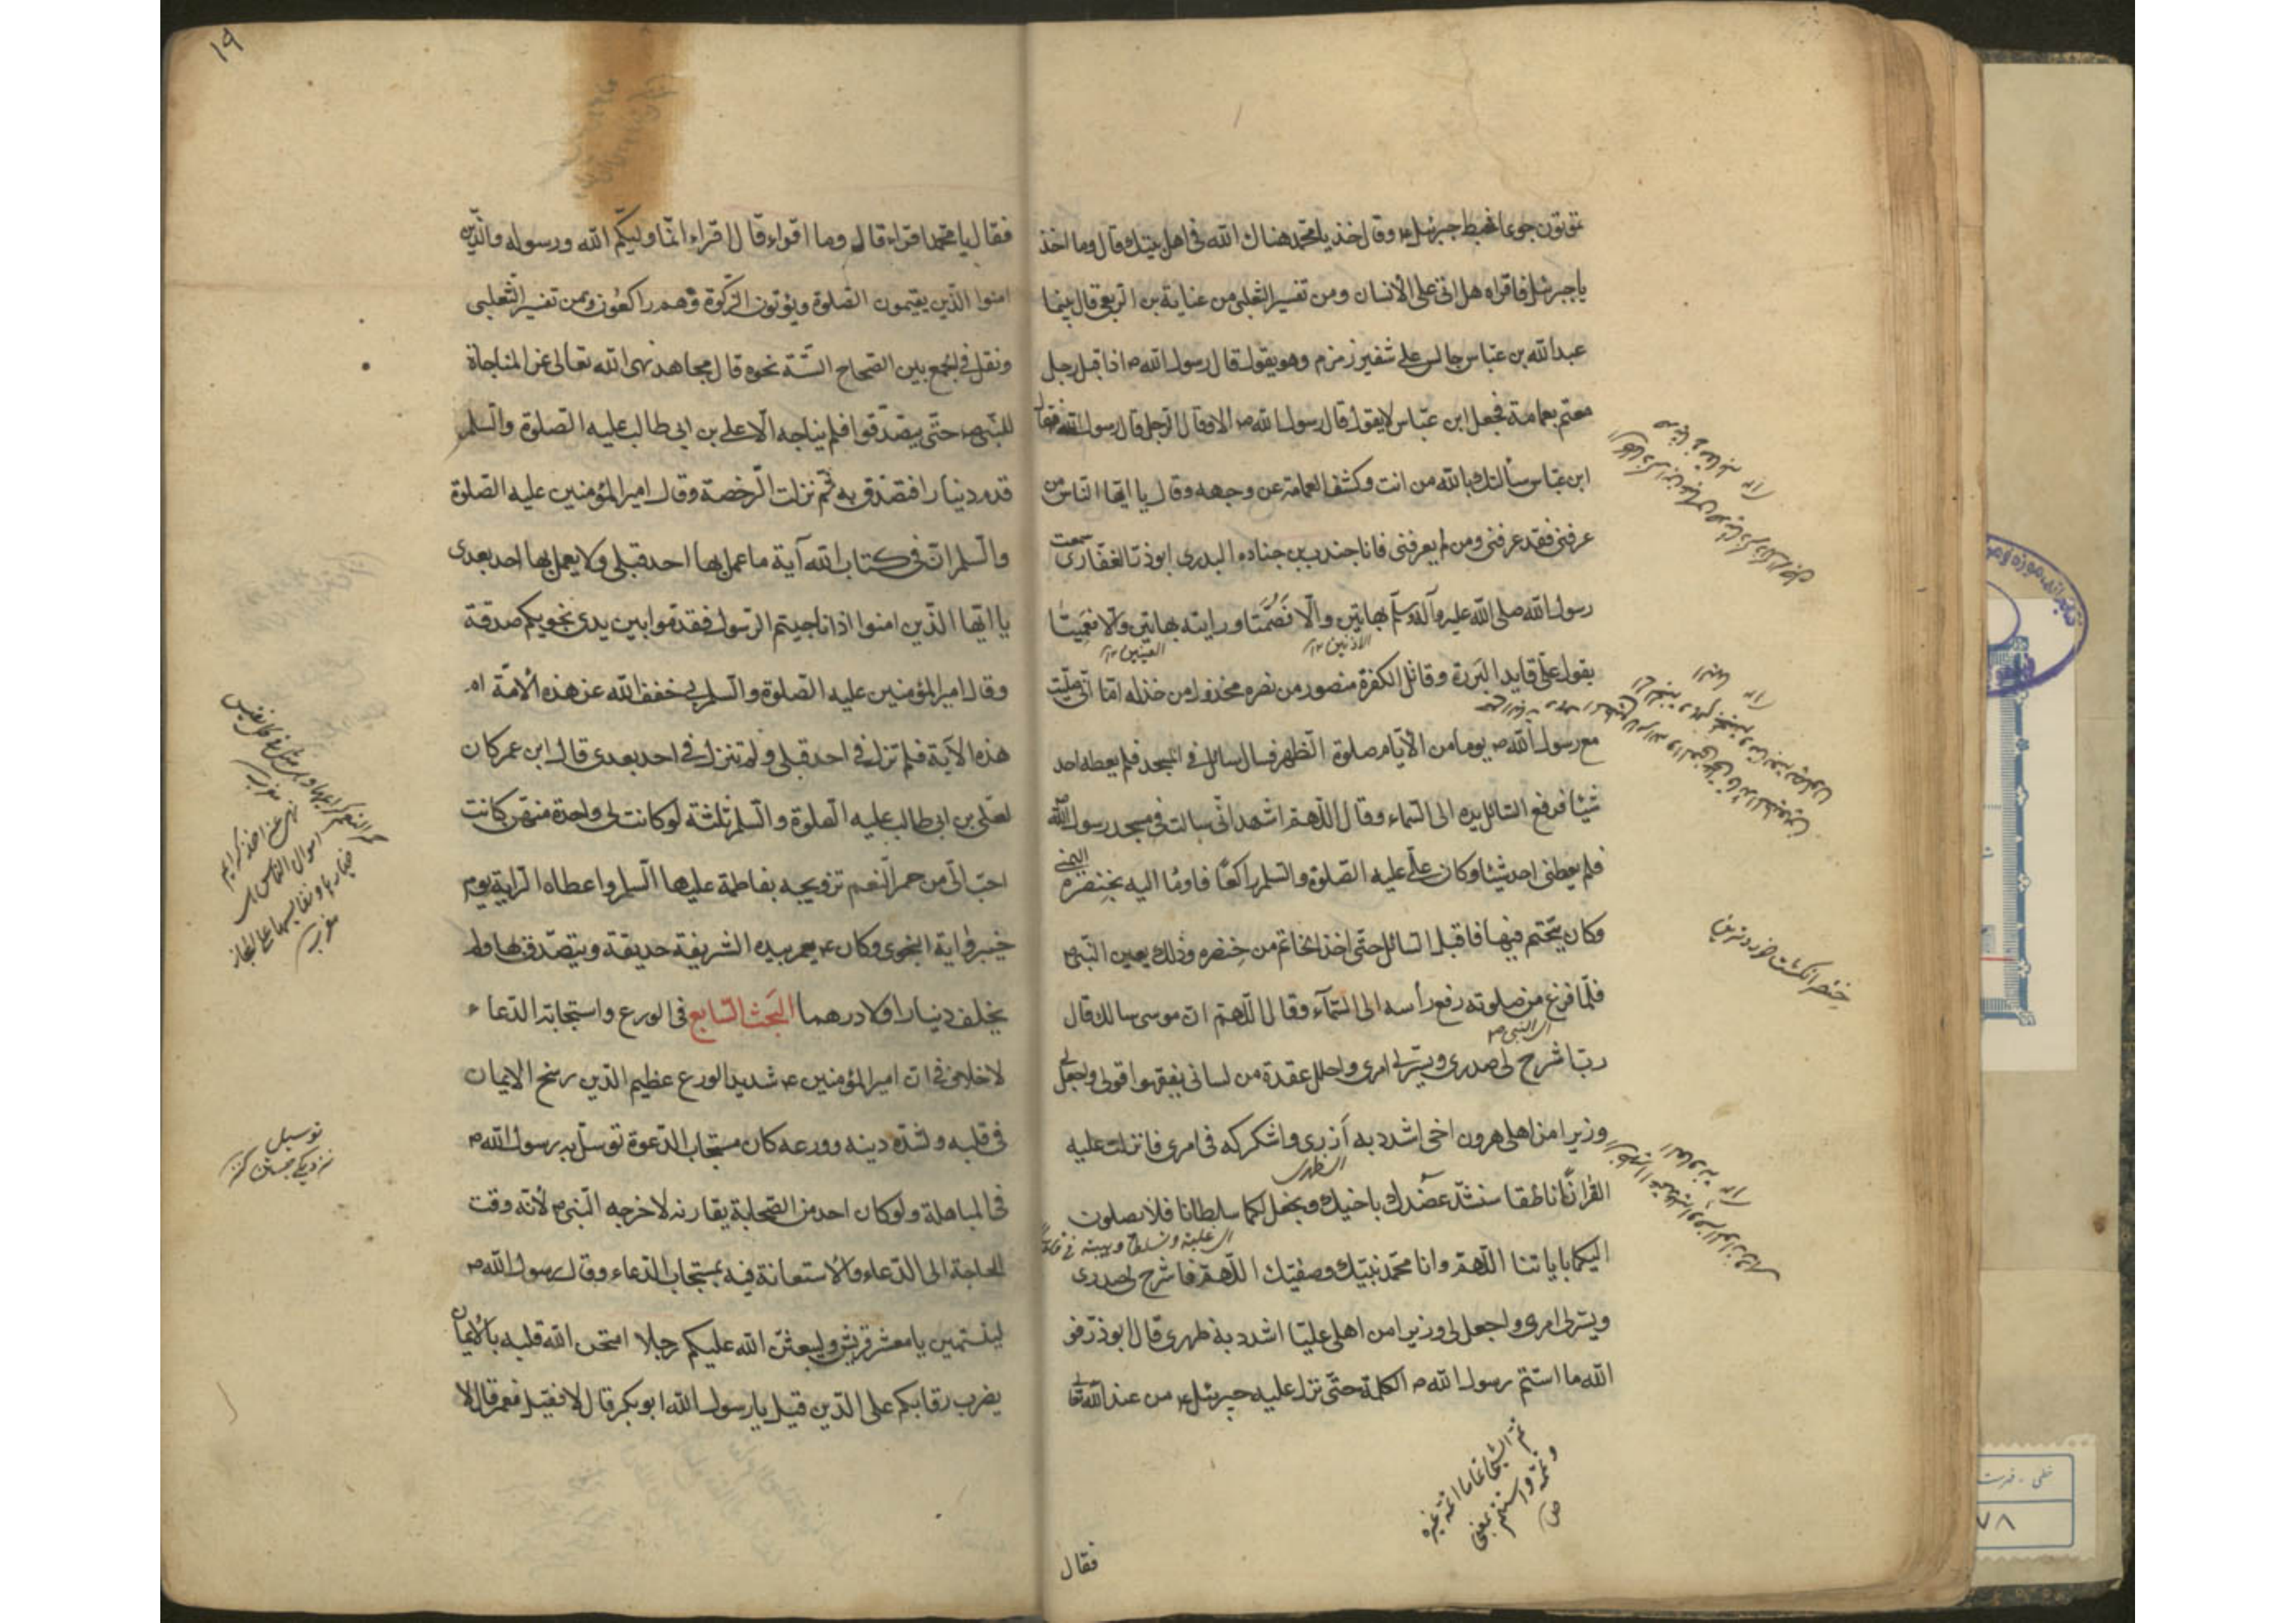 تموتون جوعا فهبط جبرئيل ع وقال خذ يا محمد هناك الله فى اهل بيتك قال وما اخذ
يا جبرئيل فاقراه هل اتى على الأنسان ومن تفسير الثعلبى من عناية بن الربعى قال بينما
عبد الله بن عباس جالس على شفير زمزم وهو يقول قال رسول الله ص اذ اقبل رجل
معتم بعمامة فجعل ابن عباس لا يقول قال رسول الله ص الا وقال الرجل قال رسول الله ص فقال
ابن عباس سألتك بالله من انت وكشف العمامة عن وجهه وقال يا ايها الناس من
عرفنى فقد عرفنى ومن لم يعرفنى فانا جندب بن جناده البدرى ابوذر الغفارى سمعت
رسول الله صلى الله عليه وآله وسلم بهاتين والا فصمتا ورايته بهاتين والا فعميتا
الاذنين ١٢ العينين ١٢
يقول على قايد البررة وقاتل الكفرة منصور من نصره مخذول من خذله اما انى صليت
مع رسول الله ص يوما من الأيام صلوة الظهر فسال سائل فى المسجد فلم يعطه احد
شيئا فرفع السائل يده الى السماء وقال اللهم اشهد انى سالت فى مسجد رسول الله
فلم يعطنى احد شيئا وكان على عليه الصلوة والسلم راكعا فاومأ اليه بخنصره اليمنى
وكان يتختم فيها فاقبل السائل حتى اخذ الخاتم من خنصره وذلك بعين النبى ص
فلما فرغ من صلوته رفع رأسه الى السمآء وقال اللهم ان موسى سالك قال
اى النبى ص
رب اشرح لى صدرى ويسر لى امرى واحلل عقدة من لسانى يفقهوا قولى واجعل لى
وزيرا من اهلى هرون اخى اشدد به أزرى واشكركه فى امرى فانزلت عليه
اى ظهرى
القرآن ناطقا سنشد عضدك باخيك ونجعل لكما سلطانا فلا يصلون
اليكما باياتنا اللهم وانا محمد نبيك وصفيك اللهم فاشرح لى صدرى
ويسر لى امرى واجعل لى وزيرا من اهلى عليا اشدد به ظهرى قال ابوذر فو
الله ما استتم رسول الله ص الكلمة حتى نزل عليه جبرئيل ع من عند الله تعالى
خنصر انگشت خورد ترين
فقال
١٩
فقال يا محمد اقراء قال وما اقراء قال اقراء انما وليكم الله ورسوله والذين
امنوا الذين يقيمون الصلوة ويؤتون الزكوة وهم راكعون ومن تفسير الثعلبى
ونقل فى الجمع بين الصحاح الستة نحوه قال مجاهد نهى الله تعالى عن المناجاة
للنبى ص حتى يتصدقوا فلم يناجه الا على بن ابى طالب عليه الصلوة والسلم
قدم دينارا فتصدق به ثم نزلت الرخصة وقال امير المؤمنين عليه الصلوة
والسلم ان فى كتاب الله آية ما عمل بها احد قبلى ولا يعمل بها احد بعدى
يا ايها الذين امنوا اذا ناجيتم الرسول فقدموا بين يدى نجويكم صدقة
وقال امير المؤمنين عليه الصلوة والسلم بى خفف الله عن هذه الأمة امر
هذه الآية فلم تنزل فى احد قبلى ولم تنزل فى احد بعدى قال ابن عمر كان
لعلى بن ابى طالب عليه الصلوة والسلم ثلثة لو كانت لى واحدة منهن كانت
احب الى من حمر النعم تزويجه بفاطمة عليها السلم واعطاه الراية يوم
خيبر واية النجوى وكان ع يعمر بيده الشريفة حديقة ويتصدق بها ولم
يخلف دينارا ولا درهما البحث السابع فى الورع واستجابة الدعاء
لا خلاف فى ان امير المؤمنين ع شديد الورع عظيم الدين رسخ الايمان
فى قلبه ولشدة دينه وورعه كان مستجاب الدعوة توسل به رسول الله ص
فى المباهلة ولو كان احد من الصحابة يقارنه لاخرجه النبى ص لأنه وقت
الحاجة الى الدعاء والأستعانة فيه بمستجاب الدعاء وقال رسول الله ص
لينتهين يا معشر قريش وليبعثن الله عليكم رجلا امتحن الله قلبه بالأيمان
يضرب رقابكم على الدين قيل يا رسول الله ابو بكر قال لا فقيل فعمر قال لا
توسل
نزديكى جستن كنز